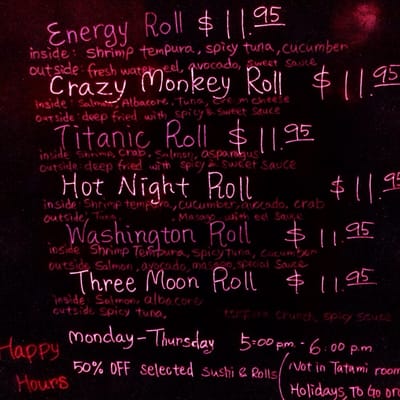 Energy Roll $ 11.95
inside: shrimp tempura, spicy tuna, cucumber
outside: fresh water eel, avocado, sweet sauce
Crazy Monkey Roll $ 11.95
inside: Salmon, Albacore, Tuna, cream cheese
outside: deep fried with spicy & sweet sauce
Titanic Roll $ 11.95
inside: Shrimp, Crab, Salmon, asparagus
outside: deep fried with spicy & sweet sauce
Hot Night Roll $ 11.95
inside: Shrimp tempura, cucumber, avocado, crab
outside: Tuna, Masago, with eel Sauce
Washington Roll $ 11.95
inside: Shrimp Tempura, Spicy tuna, cucumber
outside: Salmon, avocado, masago, special Sauce
Three Moon Roll $ 11.95
inside: Salmon, albacore
outside: spicy tuna, crunch, spicy sauce
Happy Hours
monday-Thursday 5:00 pm - 6:00 p.m.
50% OFF selected sushi & Rolls (Not in Tatami room
Holidays, To Go or